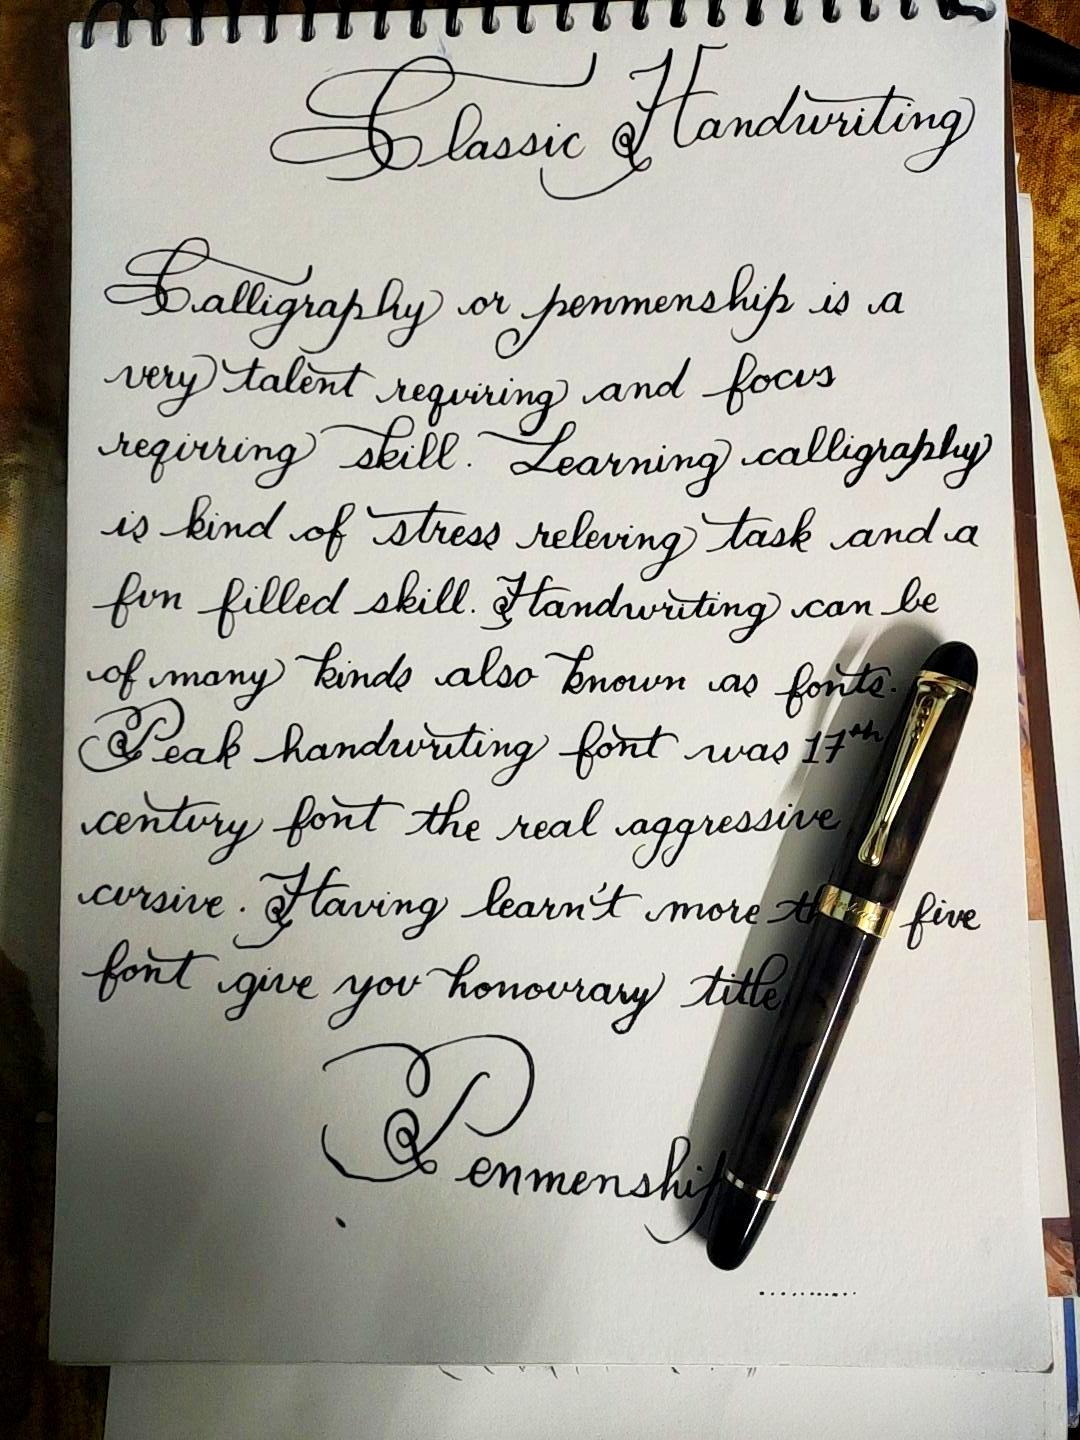 Classic Handwriting
Calligraphy or penmenship is a
very talent requiring and focus
reqirring skill. Learning calligraphy
is kind of stress releving task and a
fun filled skill. Handwriting can be
of many kinds also known as fonts.
Peak handwriting font was 17th
century font the real aggressive
cursive. Having learn't more five
font give you honourary title
Penmenship